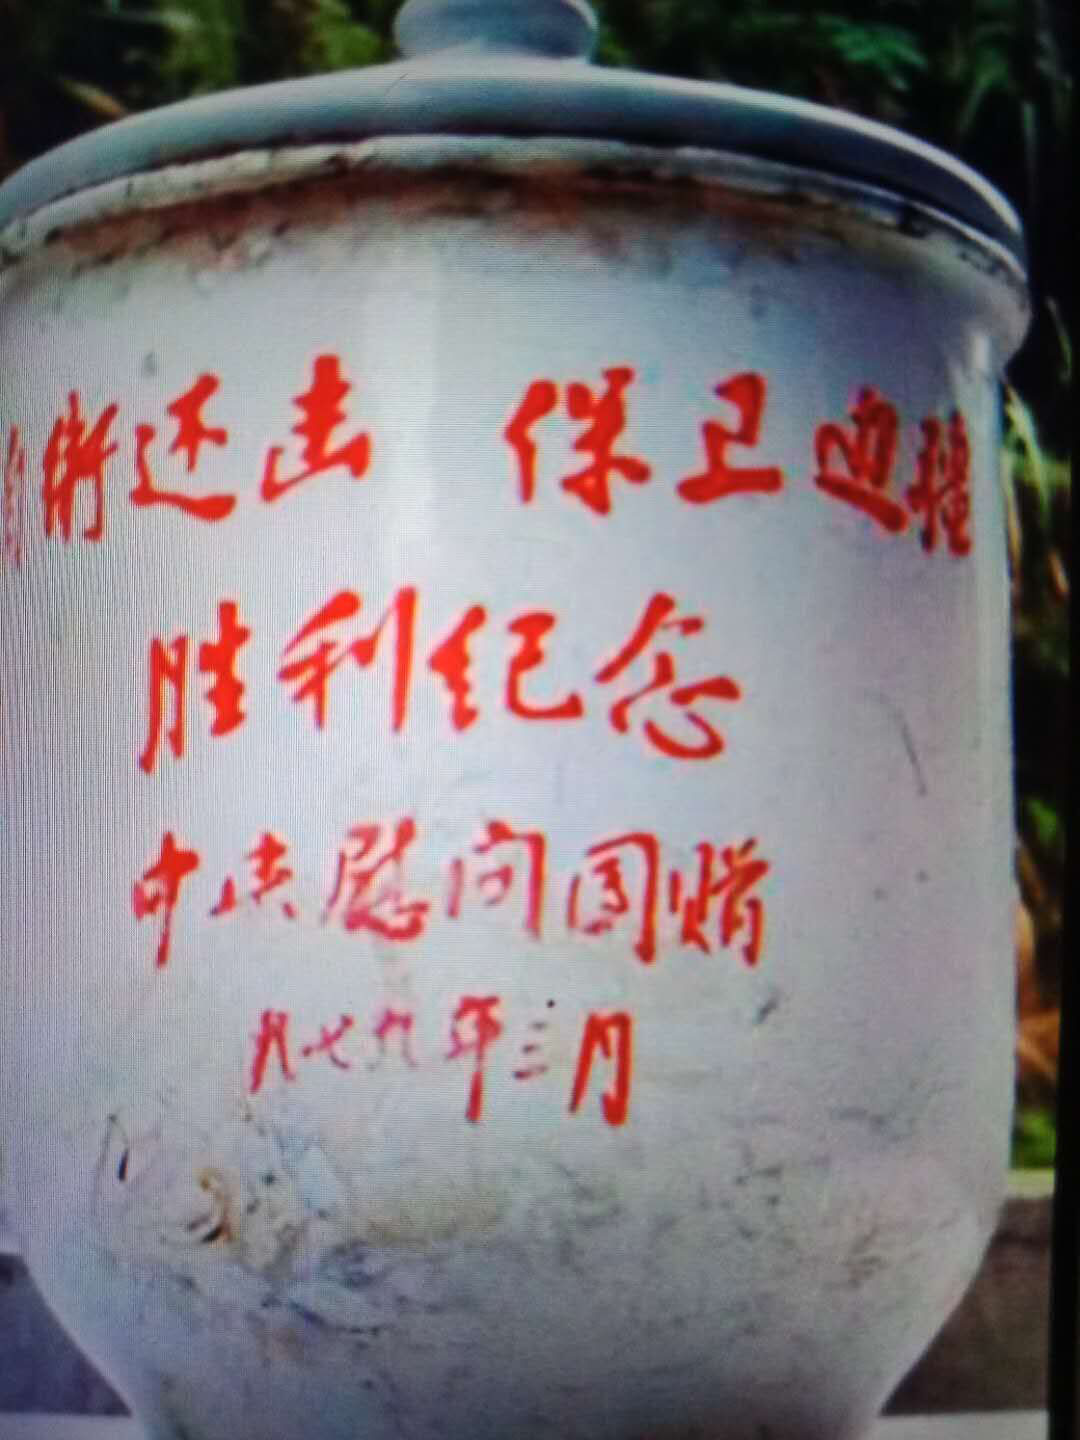 自衛还击 保卫边疆
胜利纪念
中央慰问团赠
九七九年三月